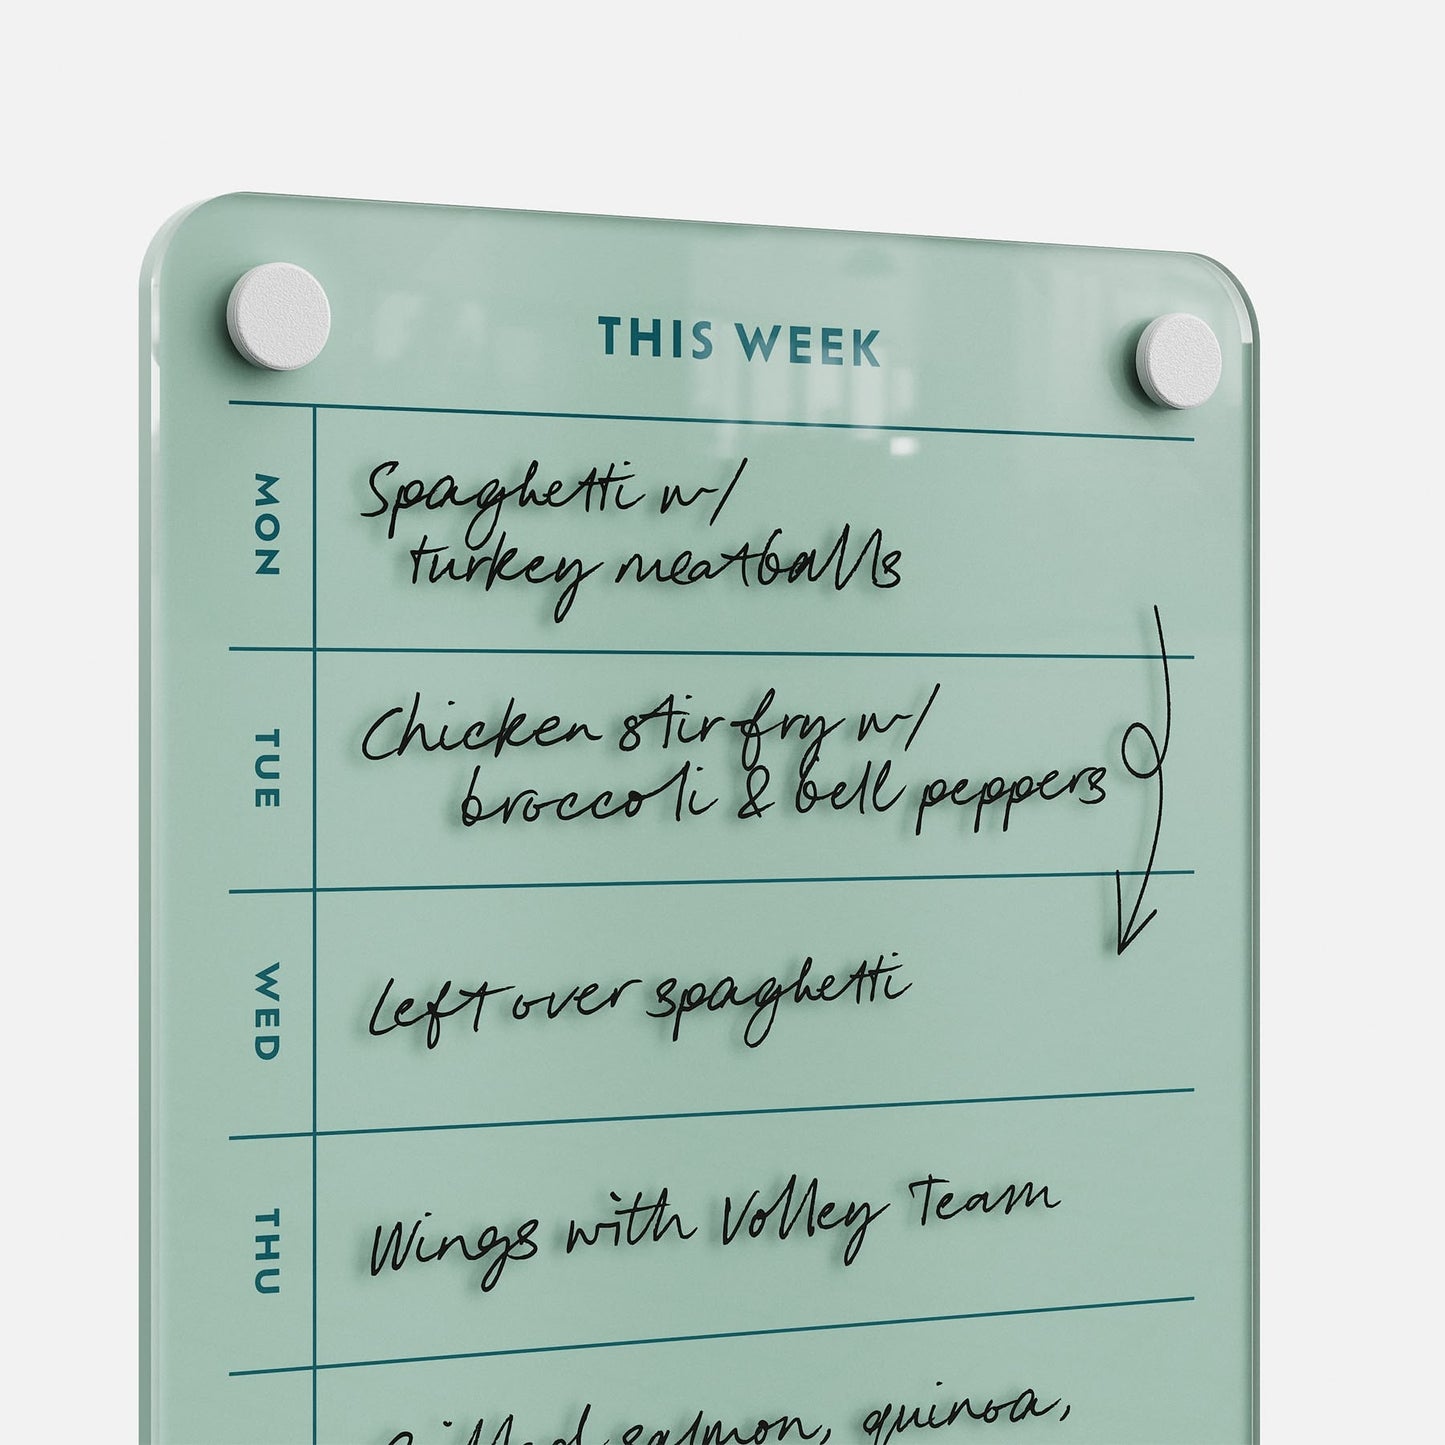 THIS WEEK
MON
Spaghetti w/
turkey meatballs
TUE
Chicken stir-fry w/
broccoli & bell peppers
WED
Left over spaghetti
THU
Wings with Volley Team
Grilled salmon, quinoa,